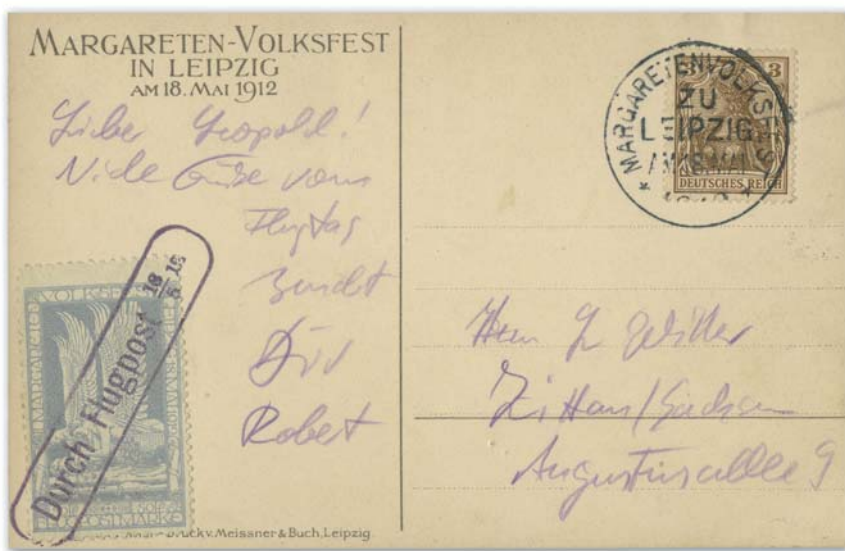 MARGARETEN-VOLKSFEST
IN LEIPZIG
AM 18. MAI 1912
Lieber Leopold!
Viele Grüße vom
Flugtag
sendet
Dir
Robert
Durch Flugpost 18/5 12
FLUGPOSTMARKE
Druck v. Meissner & Buch, Leipzig.
3 3
MARGARETENVOLKSFEST
ZU
LEIPZIG
DEUTSCHES REICH
Herrn L
Zittau/Sachsen
Augustusallee 9